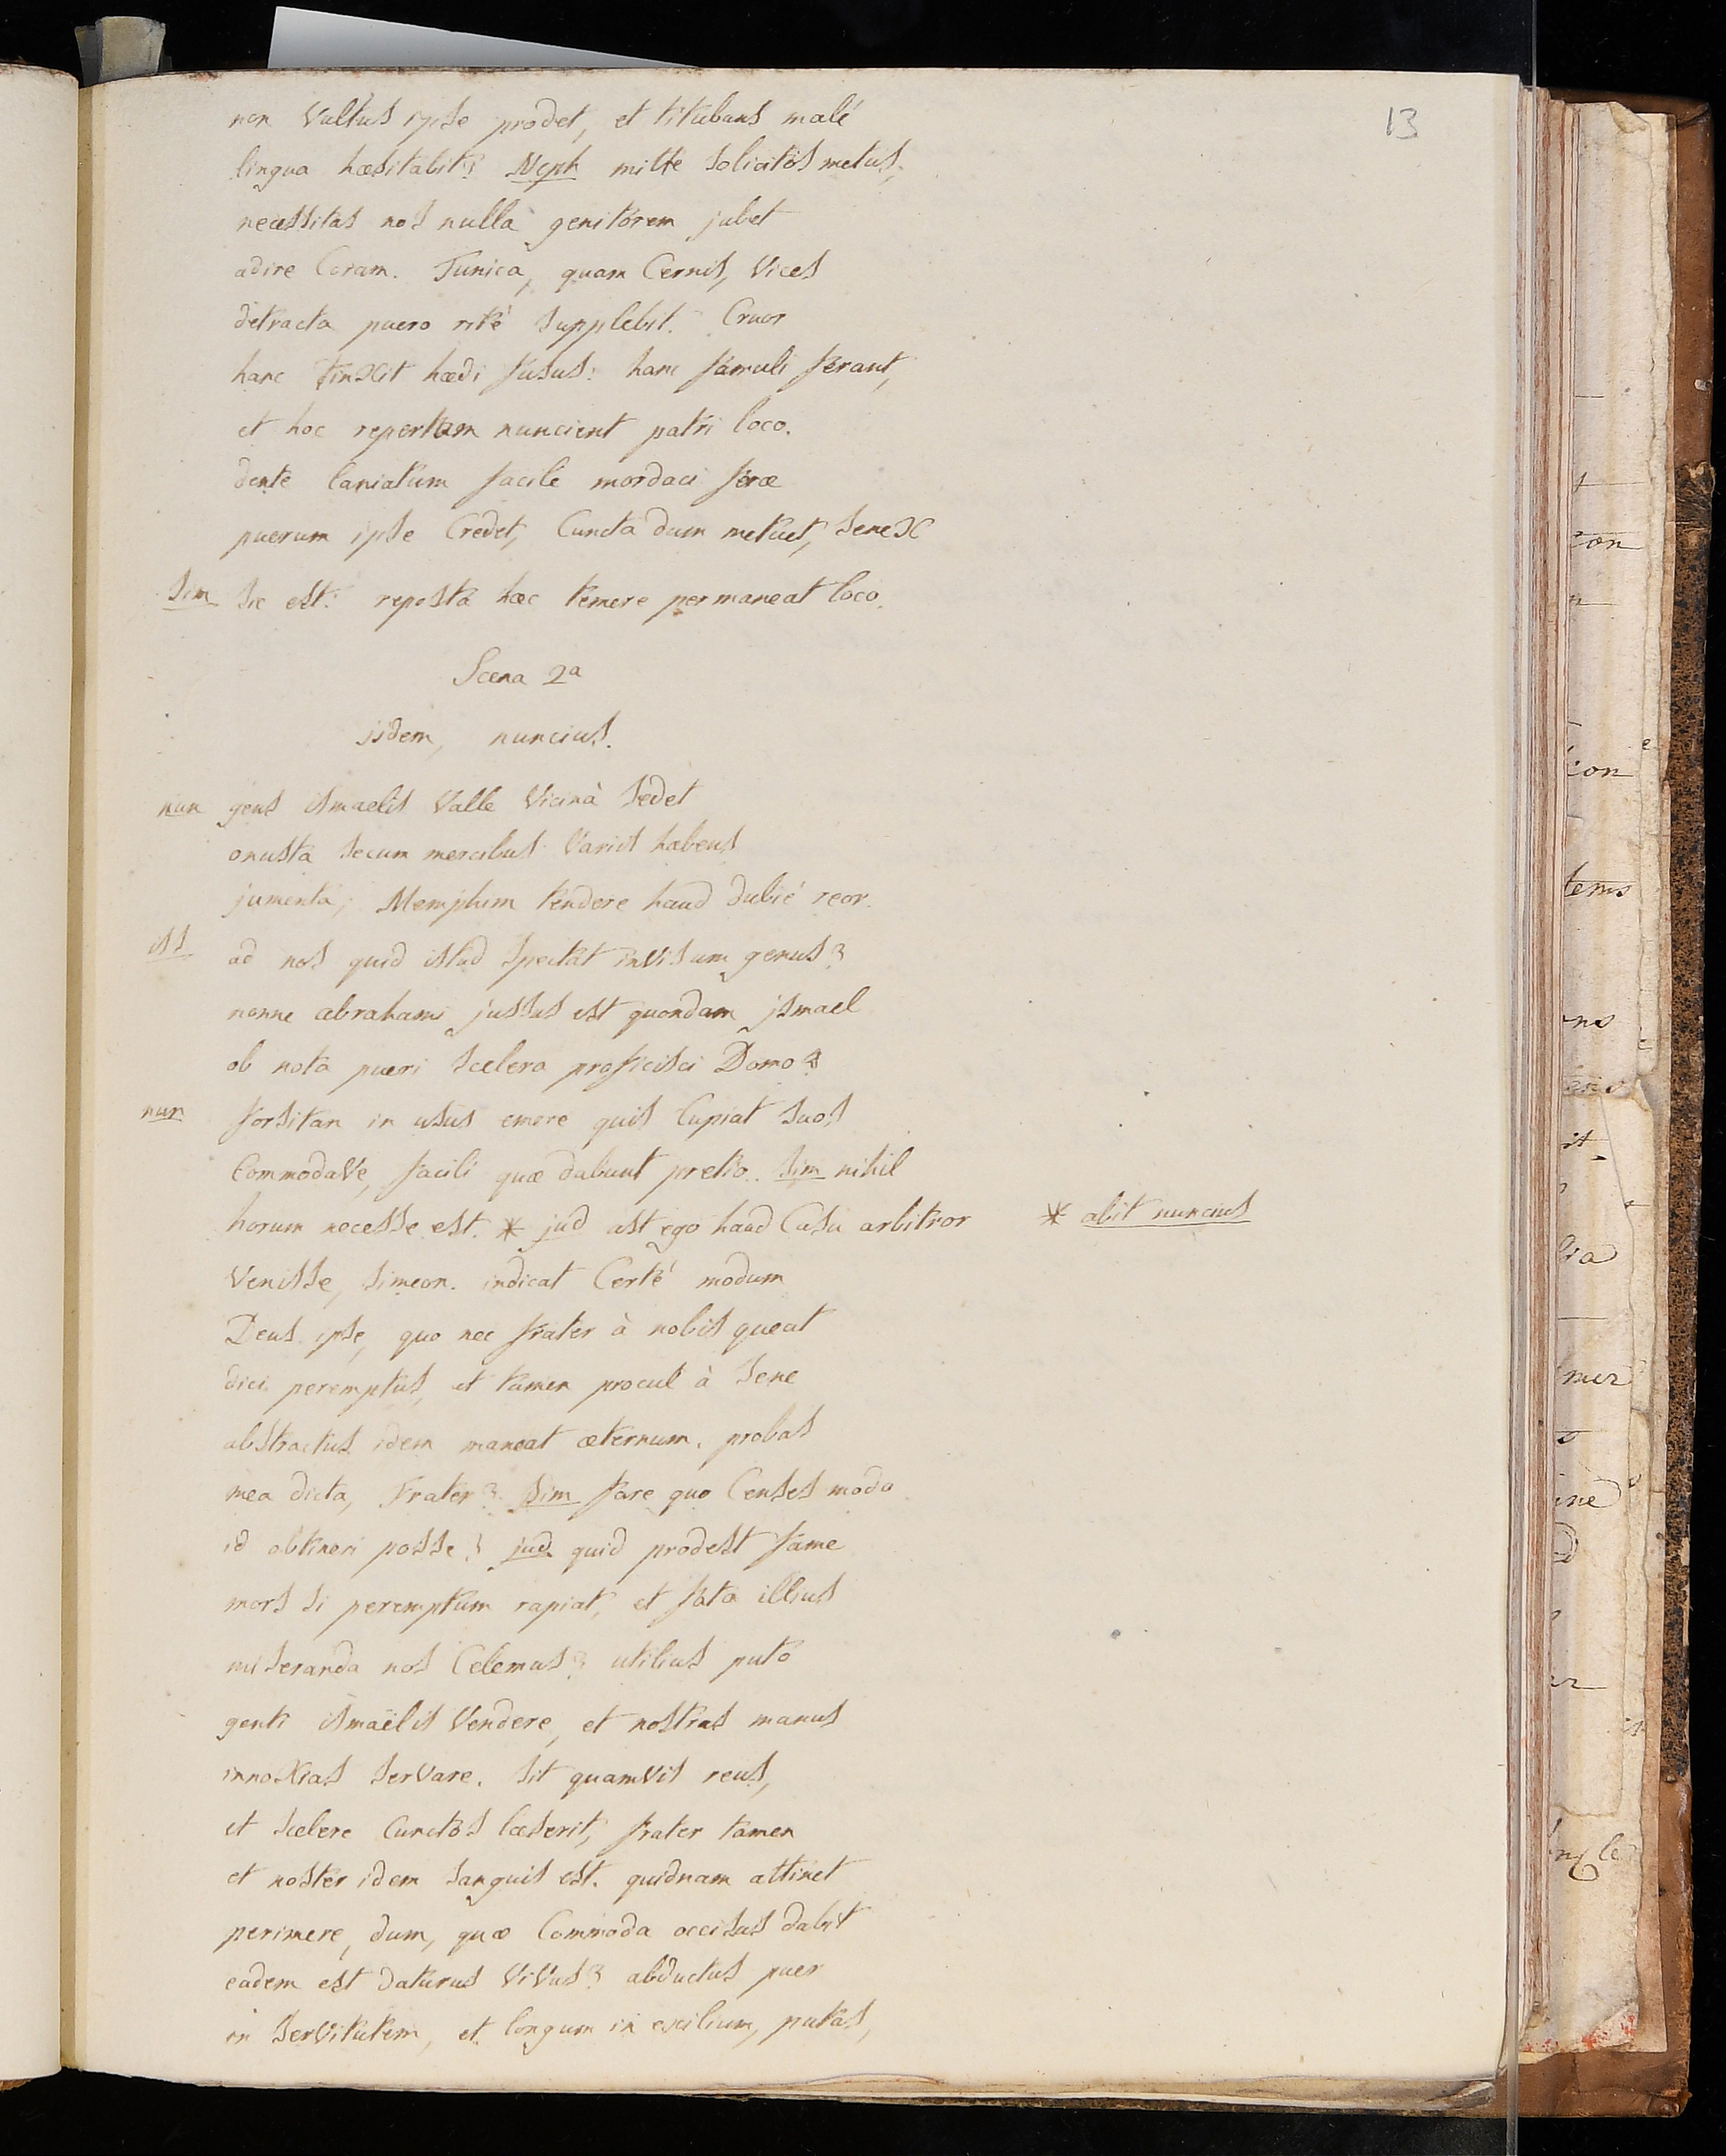 13
non Vultus ipse prodet, et titubans malé
lingua hæsitabit? Neph mitte solicitos metus,
necessitas nos nulla genitorem jubet
adire Coram. Tunica, quam Cernis, Vices
detracta puero rité supplebit. Cruor
hanc tinxit hædi fusus: hanc famuli ferant,
et hoc repertam nuncient patri loco.
dente laniatum facilé mordaci feræ
puerum ipse Credet, Cuncta dum metuet, senex
Sim Sic est: reposta hæc temere permaneat loco.
Scena 2a
iidem, nuncius.
nun gens ismaelis Valle Vicinà sedet
onusta secum mercibus Variis habens
jumenta; Memphim tendere haud dubié reor.
iss ad nos quid istud spectat invisum genus?
nonne abrahami jussus est quondam ismael
ob nota pueri scelera proficisci Domo?
nun forsitan in usus emere quis Cupiat suos
CommodaVe, facili quæ dabunt pretio. Sim nihil
horum necesse est. * jud ast ego haud Casu arbitror
* abit nuncius
Venisse, simeon. indicat Certé modum
Deus ipse, quo nec frater à nobis queat
dici peremptus, et tamen procul à sene
abstractus idem maneat æternum. probas
mea dicta, frater? Sim fare quo Censes modo
id obtineri posse? jud quid prodest fame
mors si peremptum rapiat, et fata illius
miseranda nos Celemus? utilius puto
genti ismaëlis Vendere, et nostras manus
innoxias serVare. sit quamVis reus,
et scelere Cunctos læserit, frater tamen
et noster idem sanguis est. quidnam attinet
perimere, dum, quæ Commoda occisus dabit
eadem est daturus ViVus? abductus puer
in serVitutem, et longum in exilium, putas,